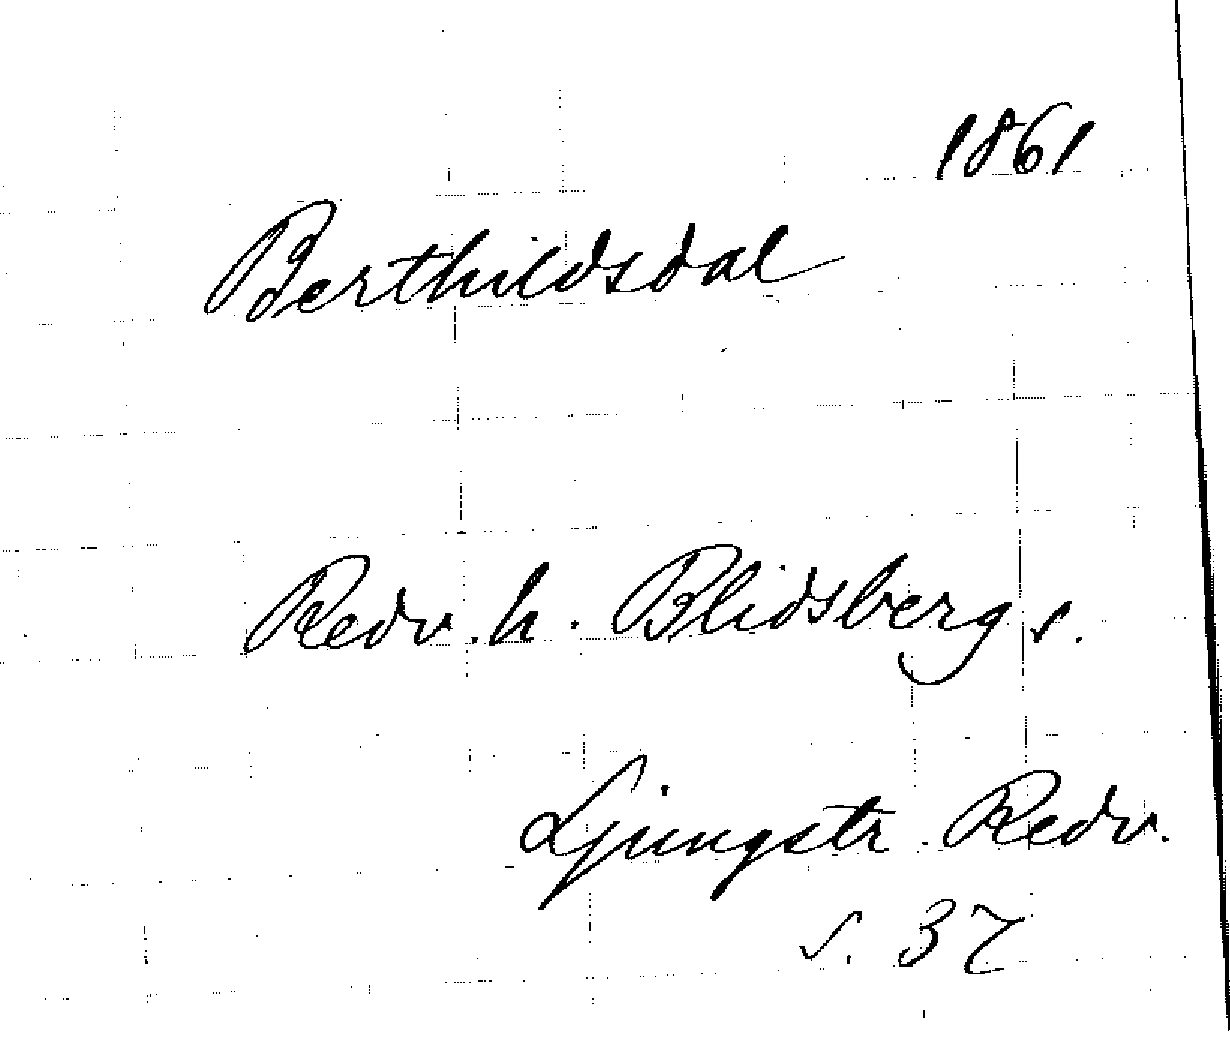 1861
Berthildsdal
Redv. h. Blidsberg s.
Ljungstr. Redv.
s. 37